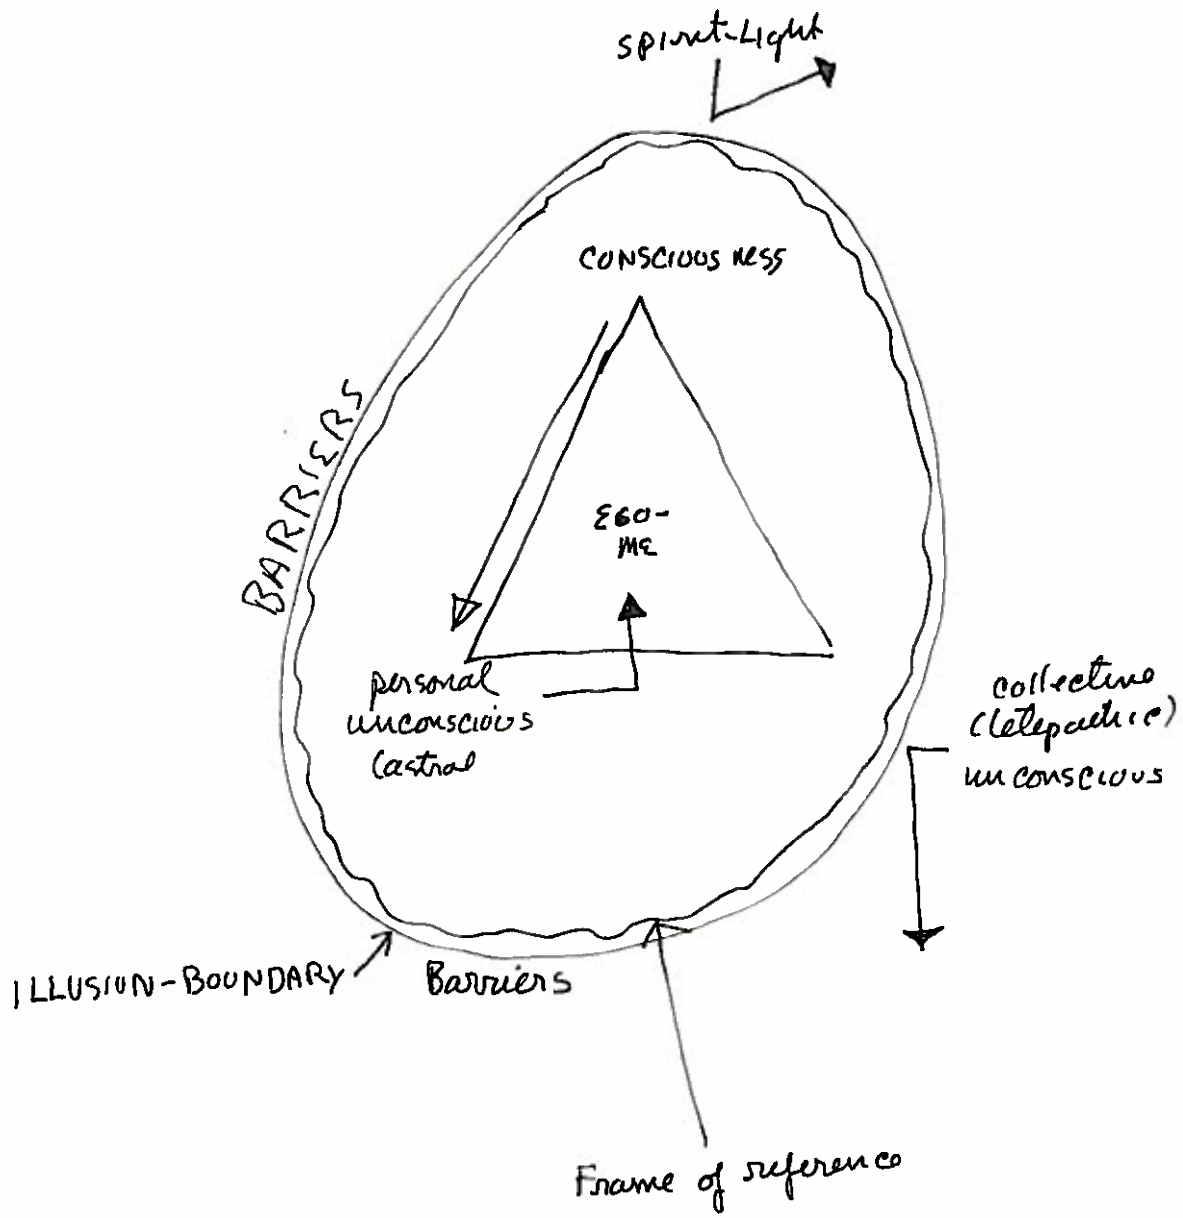 spirit-Light
CONSCIOUSNESS
BARRIERS
EGO-
ME
personal
unconscious
(astral
collective
(telepathic)
unconscious
ILLUSION-BOUNDARY
Barriers
Frame of reference